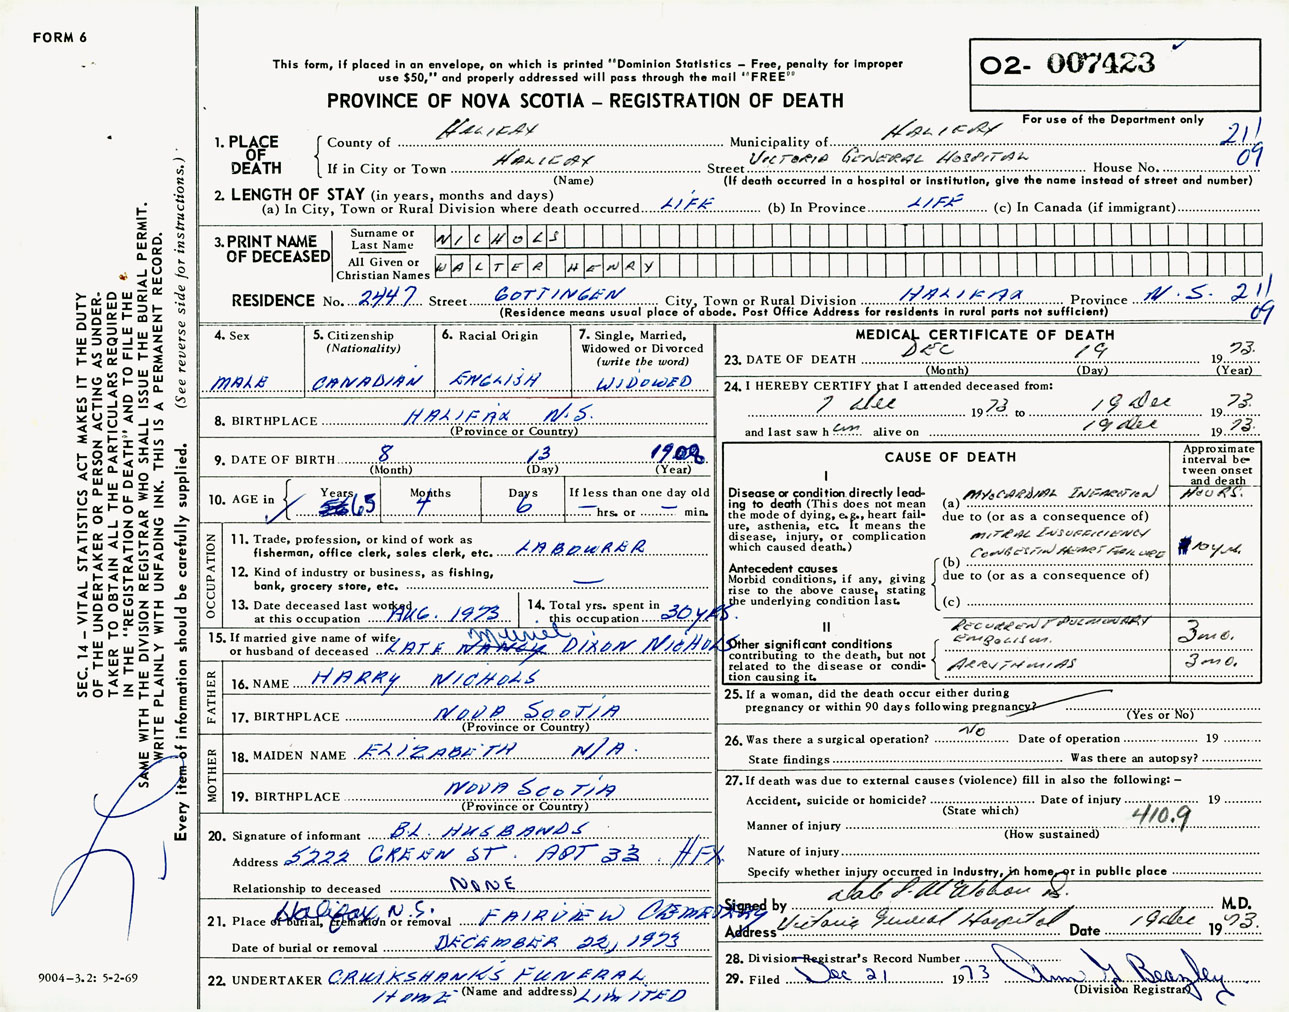 FORM 6
This form, if placed in an envelope, on which is printed "Dominion Statistics – Free, penalty for improper
use $50," and properly addressed will pass through the mail "FREE"
PROVINCE OF NOVA SCOTIA – REGISTRATION OF DEATH
O2- 007423
For use of the Department only
211
09
1. PLACE OF DEATH
County of HALIFAX Municipality of HALIFAX
If in City or Town HALIFAX Street VICTORIA GENERAL HOSPITAL House No.
(Name) (If death occurred in a hospital or institution, give the name instead of street and number)
2. LENGTH OF STAY (in years, months and days)
(a) In City, Town or Rural Division where death occurred LIFE (b) In Province LIFE (c) In Canada (if immigrant)
3. PRINT NAME OF DECEASED
Surname or Last Name NICHOLS
All Given or Christian Names WALTER HENRY
RESIDENCE No. 2447 Street GOTTINGEN City, Town or Rural Division HALIFAX Province N.S. 211
09
(Residence means usual place of abode. Post Office Address for residents in rural parts not sufficient)
4. Sex
MALE
5. Citizenship
(Nationality)
CANADIAN
6. Racial Origin
ENGLISH
7. Single, Married,
Widowed or Divorced
(write the word)
WIDOWED
8. BIRTHPLACE HALIFAX N.S.
(Province or Country)
9. DATE OF BIRTH 8 13 1908
(Month) (Day) (Year)
10. AGE in Years 65 Months 4 Days 6 If less than one day old
— hrs. or — min.
OCCUPATION
11. Trade, profession, or kind of work as
fisherman, office clerk, sales clerk, etc. LABOURER
12. Kind of industry or business, as fishing,
bank, grocery store, etc. —
13. Date deceased last worked
at this occupation AUG. 1973
14. Total yrs. spent in
this occupation 30 YRS.
15. If married give name of wife Muriel
or husband of deceased LATE NANCY DIXON NICHOLS
FATHER
16. NAME HARRY NICHOLS
17. BIRTHPLACE NOVA SCOTIA
(Province or Country)
MOTHER
18. MAIDEN NAME ELIZABETH N/A.
19. BIRTHPLACE NOVA SCOTIA
(Province or Country)
20. Signature of informant BL. HUSBANDS
Address 5222 GREEN ST. APT 33 HFX
Relationship to deceased NONE
Halifax N.S.
21. Place of burial, cremation or removal FAIRVIEW CEMETARY
Date of burial or removal DECEMBER 22, 1973
22. UNDERTAKER CRUIKSHANK'S FUNERAL
HOME (Name and address) LIMITED
MEDICAL CERTIFICATE OF DEATH
23. DATE OF DEATH DEC 19 1973.
(Month) (Day) (Year)
24. I HEREBY CERTIFY that I attended deceased from:
7 Dec 1973 to 19 Dec 1973.
and last saw him alive on 19 Dec 1973.
CAUSE OF DEATH
Approximate interval between onset and death
I
Disease or condition directly lead-
ing to death (This does not mean
the mode of dying, e.g., heart fail-
ure, asthenia, etc. It means the
disease, injury, or complication
which caused death.)
(a) MYOCARDIAL INFARCTION HOURS.
due to (or as a consequence of)
MITRAL INSUFFICIENCY
(b) CONGESTIV HEART FAILURE 10 yrs.
due to (or as a consequence of)
(c)
Antecedent causes
Morbid conditions, if any, giving
rise to the above cause, stating
the underlying condition last.
II
Other significant conditions
contributing to the death, but not
related to the disease or condi-
tion causing it.
RECURRENT PULMONARY
EMBOLISM. 3 mo.
ARRYTHMIAS 3 mo.
25. If a woman, did the death occur either during
pregnancy or within 90 days following pregnancy?
(Yes or No)
26. Was there a surgical operation? NO Date of operation 19
State findings Was there an autopsy?
27. If death was due to external causes (violence) fill in also the following: –
Accident, suicide or homicide? Date of injury 19
(State which) 410.9
Manner of injury
(How sustained)
Nature of injury
Specify whether injury occurred in industry, in home, or in public place
Signed by M.D.
Address Victoria General Hospital Date 19 Dec 1973.
28. Division Registrar's Record Number
29. Filed Dec 21 1973 Ann G Beazley
(Division Registrar)
SEC. 14 – VITAL STATISTICS ACT MAKES IT THE DUTY
OF THE UNDERTAKER OR PERSON ACTING AS UNDER-
TAKER TO OBTAIN ALL THE PARTICULARS REQUIRED
IN THE "REGISTRATION OF DEATH" AND TO FILE THE
SAME WITH THE DIVISION REGISTRAR WHO SHALL ISSUE THE BURIAL PERMIT.
WRITE PLAINLY WITH UNFADING INK. THIS IS A PERMANENT RECORD.
Every item of information should be carefully supplied. (See reverse side for instructions.)
9004–3.2: 5-2-69